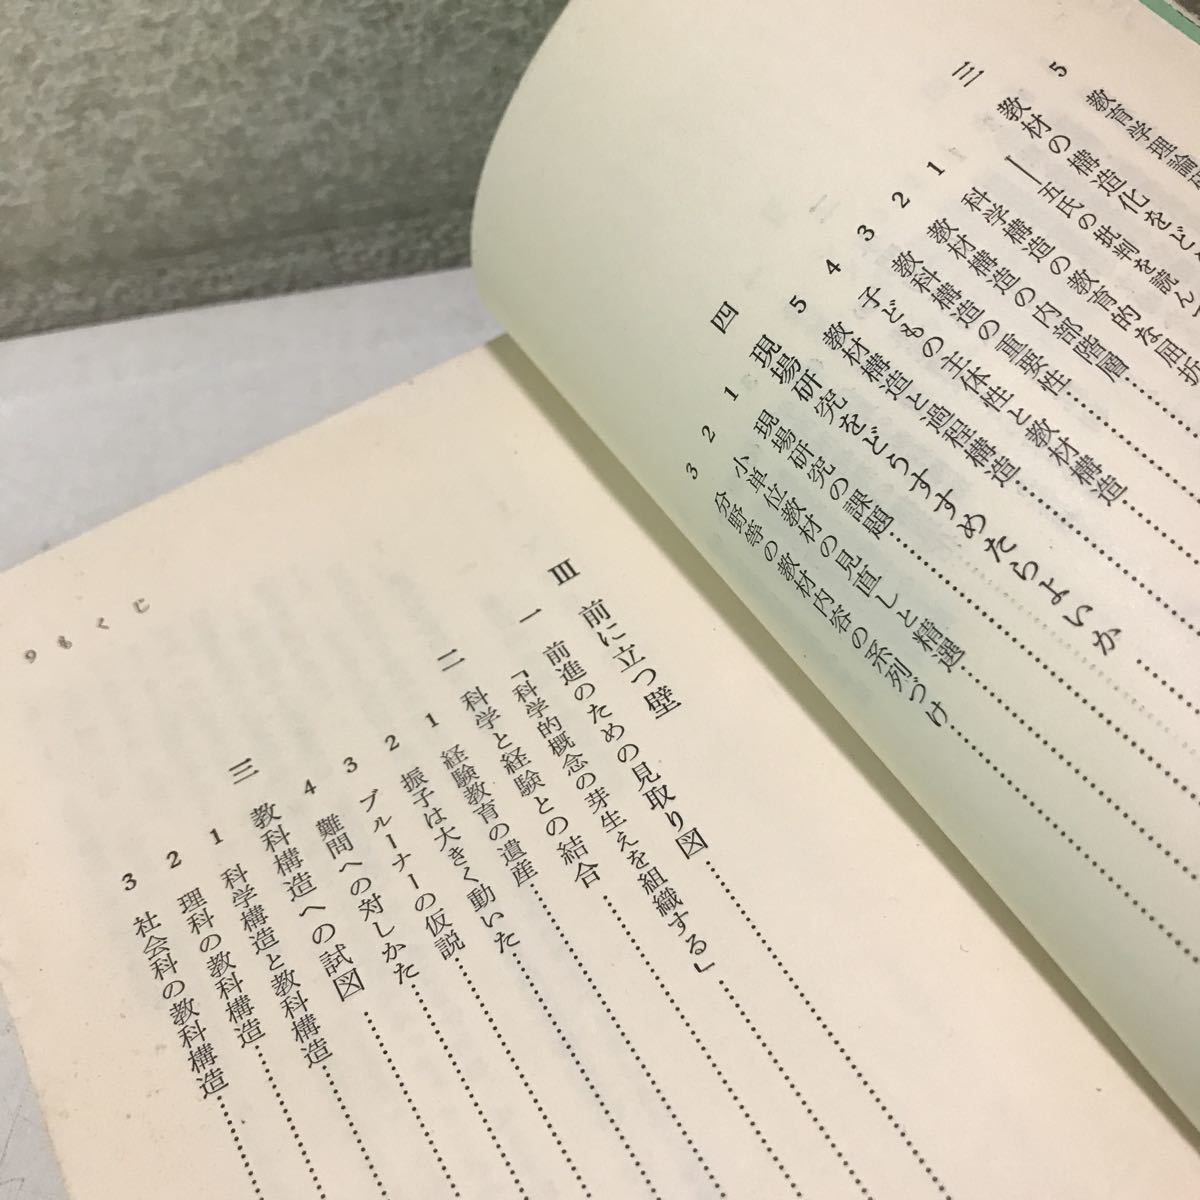 5 教育学理論
三 教材の構造化をど
──五氏の批判を読ん
1 科学構造の教育的な屈折
2 教材構造の内部階層
3 教科構造の重要性
4 子どもの主体性と教材構造
5 教材構造と過程構造
四 現場研究をどうすすめたらよいか
1 現場研究の課題
2 小単位教材の見直しと精選
3 分野等の教材内容の系列づけ
Ⅲ 前に立つ壁
一 前進のための見取り図
「科学的概念の芽生えを組織する」
二 科学と経験との結合
1 経験教育の遺産
2 振子は大きく動いた
3 ブルーナーの仮説
4 難問への対しかた
三 教科構造への試図
1 科学構造と教科構造
2 理科の教科構造
3 社会科の教科構造
9 もくじ